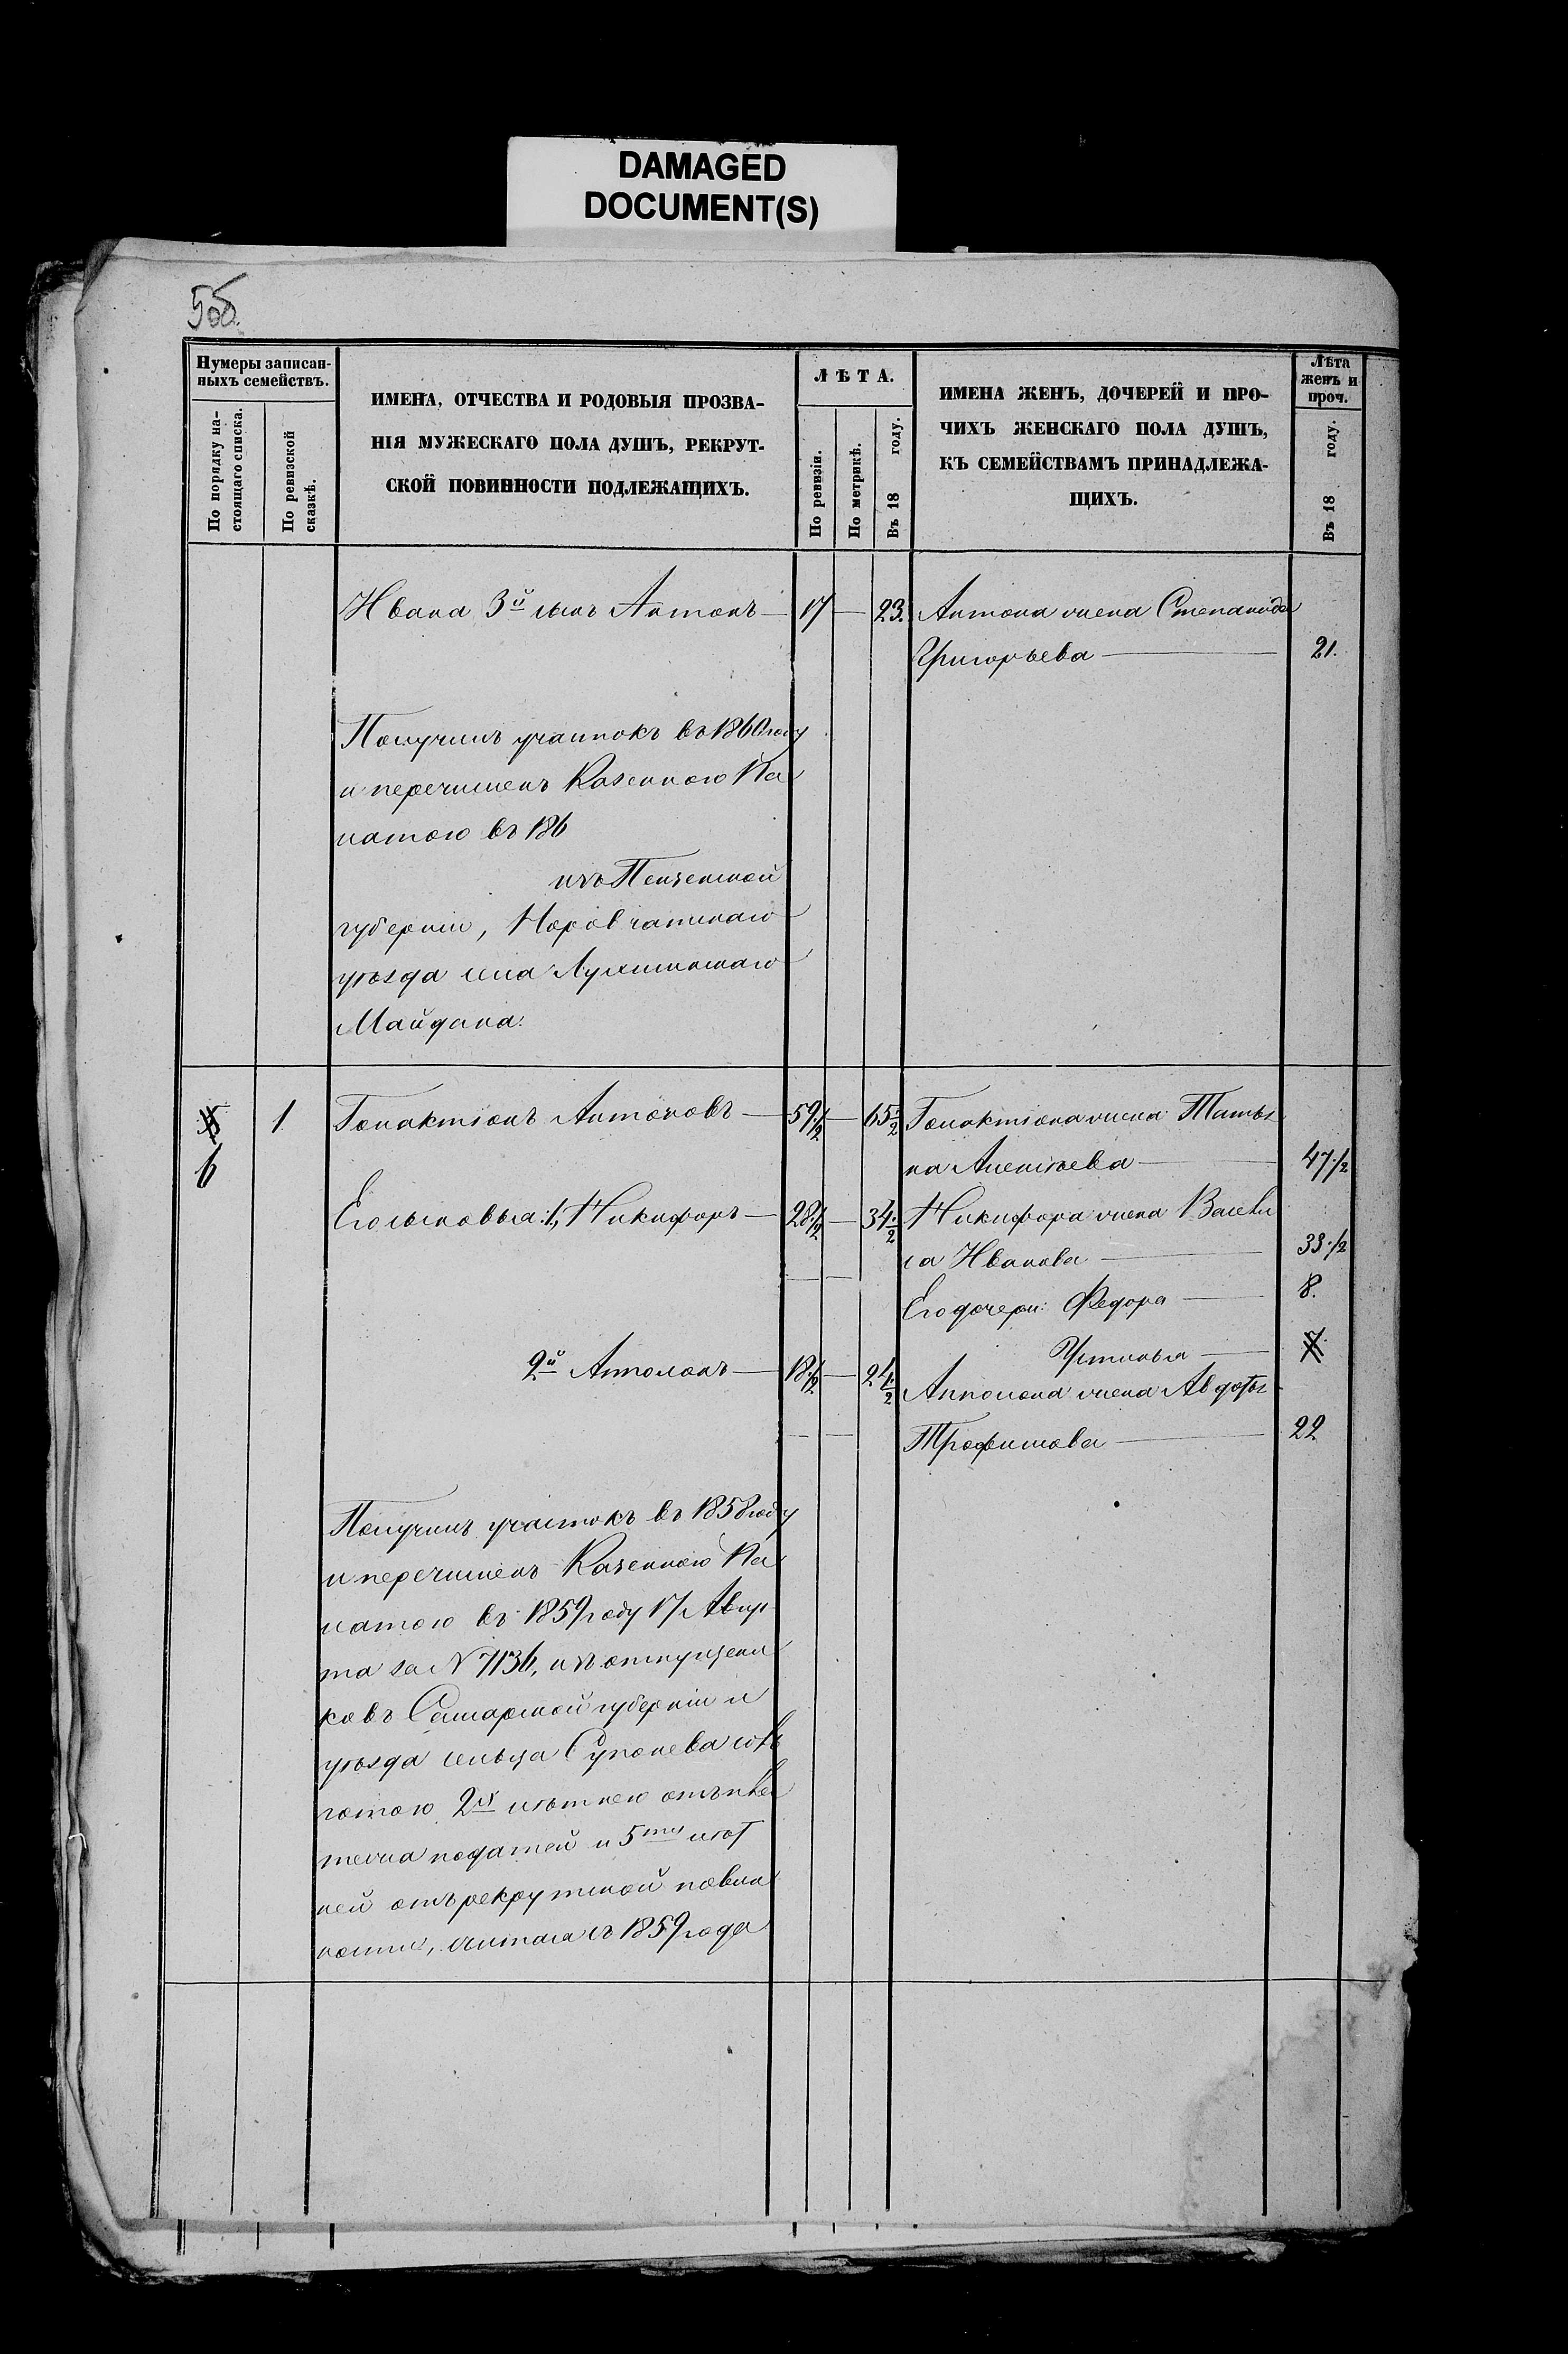 DAMAGED
DOCUMENT(S)
5об.
Нумеры записан-
ныхъ семействъ.
По порядку на-
стоящаго списка.
По ревизской
сказкѣ.
ИМЕНА, ОТЧЕСТВА И РОДОВЫЯ ПРОЗВА-
НІЯ МУЖЕСКАГО ПОЛА ДУШЪ, РЕКРУТ-
СКОЙ ПОВИННОСТИ ПОДЛЕЖАЩИХЪ.
ЛѢТА.
По ревизіи.
По метрикѣ.
Въ 18 году.
ИМЕНА ЖЕНЪ, ДОЧЕРЕЙ И ПРО-
ЧИХЪ ЖЕНСКАГО ПОЛА ДУШЪ,
КЪ СЕМЕЙСТВАМЪ ПРИНАДЛЕЖА-
ЩИХЪ.
Лѣта
женъ и
проч.
Въ 18 году.
Ивана 3й сынъ Антонъ — 17 — 23. Антона жена Степанида
Григорьева — 21.
Получилъ участокъ въ 1860 году
и перечисленъ Казенною Па
латою въ 186
изъ Пензенской
губерніи, Норовчатскаго
уѣзда села
Майдана.
5 1 Галактіонъ Антоновъ — 59 1/2 — 65 1/2 Галактіона жена Татья
6 на Алексѣева — 47 1/2
Его сыновья: 1, Никифоръ — 28 1/2 — 34 1/2 Никифора жена Васели
са Иванова — 33 1/2
Его дочери: Федора — 8.
Устинья — 7.
2й Апполонъ — 18 1/2 — 24 1/2 Апполона жена Авдотья
Трофимова — 22
Получилъ участокъ въ 1858 году
и перечисленъ Казенною Па
латою въ 1859 году 17 Авгус
та за N 7136, изъ отпущенни
ковъ Самарской губерніи и
уѣзда сельца Супонева со ль
готою 2х лѣтнею отъ пла
тежа податей и 5ти лѣт
ней отъ рекрутской повин
ности, считая съ 1859 года